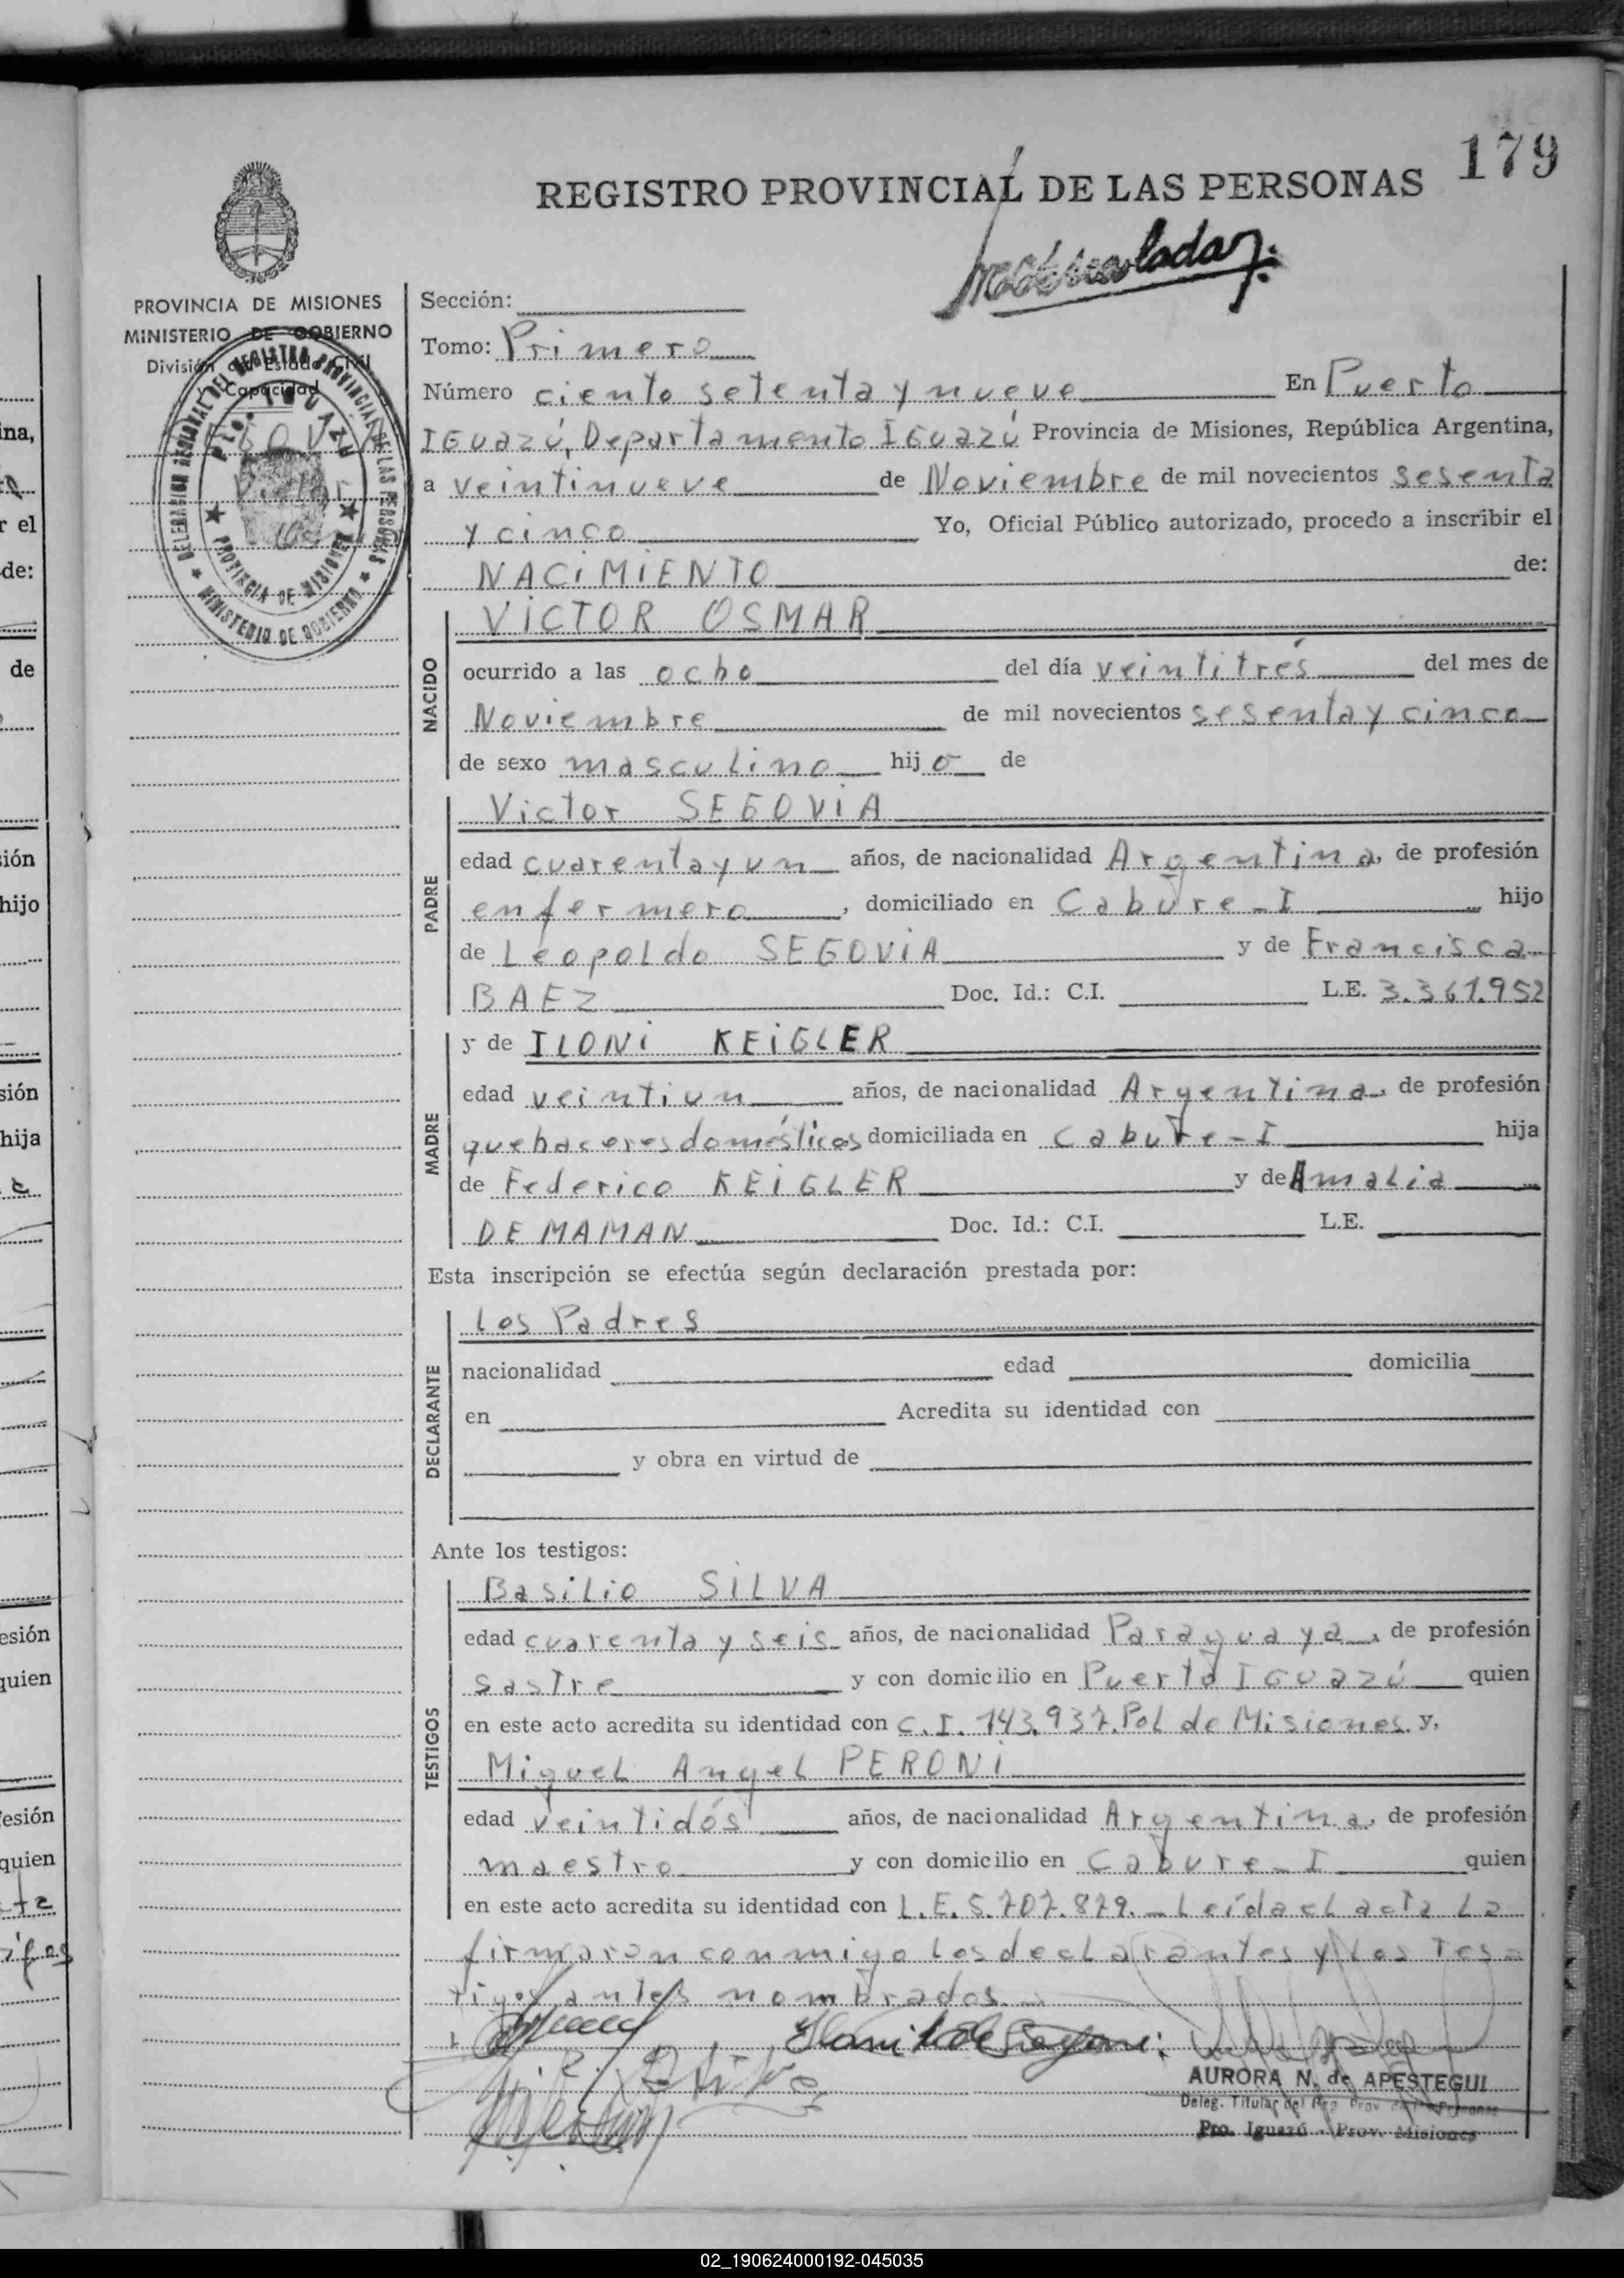 179
REGISTRO PROVINCIAL DE LAS PERSONAS
PROVINCIA DE MISIONES
MINISTERIO DE GOBIERNO
División de Estado Civil
y Capacidad
DELEGACION SECCIONAL DEL REGISTRO PROVINCIAL DE LAS PERSONAS
Pto. IGUAZU
PROVINCIA DE MISIONES
MINISTERIO DE GOBIERNO
SEGOVIA
Victor
Osmar
Sección:
Tomo: Primero
Número ciento setenta y nueve En Puerto
IGuazú, Departamento IGuazú Provincia de Misiones, República Argentina,
a veintinueve de Noviembre de mil novecientos sesenta
y cinco Yo, Oficial Público autorizado, procedo a inscribir el
NACIMIENTO de:
NACIDO
VICTOR OSMAR
ocurrido a las ocho del día veintitrés del mes de
Noviembre de mil novecientos sesenta y cinco
de sexo masculino hijo de
PADRE
Victor SEGOVIA
edad cuarenta y un años, de nacionalidad Argentina, de profesión
enfermero, domiciliado en Cabure-I hijo
de Leopoldo SEGOVIA y de Francisca
BAEZ Doc. Id.: C.I. L.E. 3.361.952
MADRE
y de ILONI KEIGLER
edad veintiun años, de nacionalidad Argentina, de profesión
quehaceres domésticos domiciliada en Cabure-I hija
de Federico KEIGLER y de Amalia
DEMAMAN Doc. Id.: C.I. L.E.
Esta inscripción se efectúa según declaración prestada por:
DECLARANTE
Los Padres
nacionalidad edad domicilia
en Acredita su identidad con
y obra en virtud de
Ante los testigos:
TESTIGOS
Basilio SILVA
edad cuarenta y seis años, de nacionalidad Paraguaya, de profesión
sastre y con domicilio en Puerto IGuazú quien
en este acto acredita su identidad con C.I. 143.937. Pol de Misiones y,
Miguel Angel PERONI
edad veintidós años, de nacionalidad Argentina, de profesión
maestro y con domicilio en Cabure-I quien
en este acto acredita su identidad con L.E. 5.707.879.- Leída el acta la
firmaron conmigo los declarantes y los tes=
tigos antes nombrados.-
AURORA N. de APESTEGUI
Deleg. Titular del Reg. Prov. de las Personas
Pto. Iguazú - Prov. Misiones
02_190624000192-045035